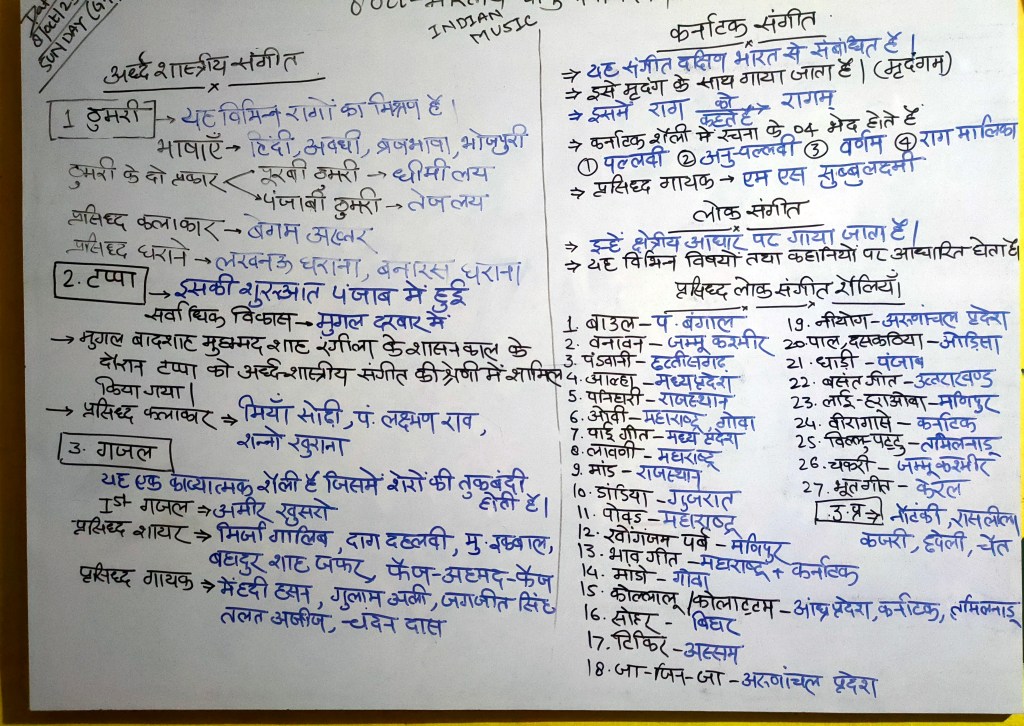 SUNDAY
INDIAN
MUSIC
अर्ध्द शास्त्रीय संगीत
1 ठुमरी → यह विभिन्न रागों का मिश्रण है।
भाषाएँ → हिंदी, अवधी, ब्रजभाषा, भोजपुरी
ठुमरी के दो प्रकार पूरबी ठुमरी → धीमी लय
पंजाबी ठुमरी → तेज लय
प्रसिध्द कलाकार → बेगम अख्तर
प्रसिध्द घराने → लखनऊ घराना, बनारस घराना
2. टप्पा → इसकी शुरूआत पंजाब में हुई
सर्वाधिक विकास → मुगल दरबार में
→ मुगल बादशाह मुहम्मद शाह रंगीला के शासन काल के
दौरान टप्पा को अर्ध्द-शास्त्रीय संगीत की श्रेणी में शामिल
किया गया।
→ प्रसिध्द कलाकार → मियाँ सोदी, पं. लक्ष्मण राव,
शन्नो खुराना
3. गजल
यह एक काव्यात्मक शैली है जिसमें शेरों की तुकबंदी
होती है।
Ist गजल → अमीर खुसरो
प्रसिध्द शायर → मिर्जा गालिब, दाग दहलवी, मु. इकबाल,
बहादुर शाह जफर, फैज-अहमद-फैज
प्रसिध्द गायक → मेंहदी हसन, गुलाम अली, जगजीत सिंह
तलत अजीज, चंदन दास
कर्नाटक संगीत
⇒ यह संगीत दक्षिण भारत से संबंधित है।
⇒ इसे मृदंग के साथ गाया जाता है। (मृदंगम)
⇒ इसमें राग को कहते है → रागम्
⇒ कर्नाटक शैली में रचना के 04 भेद होते हैं
① पल्लवी ② अनु-पल्लवी ③ वर्णम ④ राग मालिका
⇒ प्रसिध्द गायक → एम एस सुब्बुलक्ष्मी
लोक संगीत
⇒ इन्हें क्षेत्रीय आधार पर गाया जाता है।
⇒ यह विभिन विषयों तथा कहानियों पर आधारित होता है
प्रसिध्द लोक संगीत शैलियाँ
1. बाउल - प. बंगाल
2. वनावन - जम्मू कश्मीर
3. पंडवानी - छत्तीसगढ
4. आल्हा - मध्यप्रदेश
5. पनिहारी - राजस्थान
6. ओवी - महाराष्ट्र, गोवा
7. पाई गीत - मध्य प्रदेश
8. लावणी - महाराष्ट्र
9. मांड - राजस्थान
10. डांडिया - गुजरात
11. पोवड - महाराष्ट्र
12. खोंगजम पर्व - मणिपुर
13. भाव गीत - महाराष्ट्र + कर्नाटक
14. मांडो - गोवा
15. कोल्लालू / कोलाट्टम - आंध्र प्रदेश, कर्नाटक, तमिलनाडू
16. सोहर - बिहार
17. टिकिर - अस्सम
18. जा-जिन-जा - अरूणांचल प्रदेश
19. नीयोग - अरूणांचल प्रदेश
20. पाल, दसकठिया - ओडिसा
21. धाड़ी - पंजाब
22. बसंत गीत - उत्तराखण्ड
23. लाई-हराओबा - मणिपुर
24. वीरागासे - कर्नाटक
25. विल्लु पट्टु - तमिलनाडू
26. चकरी - जम्मू कश्मीर
27. भूत गीत - केरल
उ.प्र → नौटंकी, रासलीला
कजरी, होली, चैत